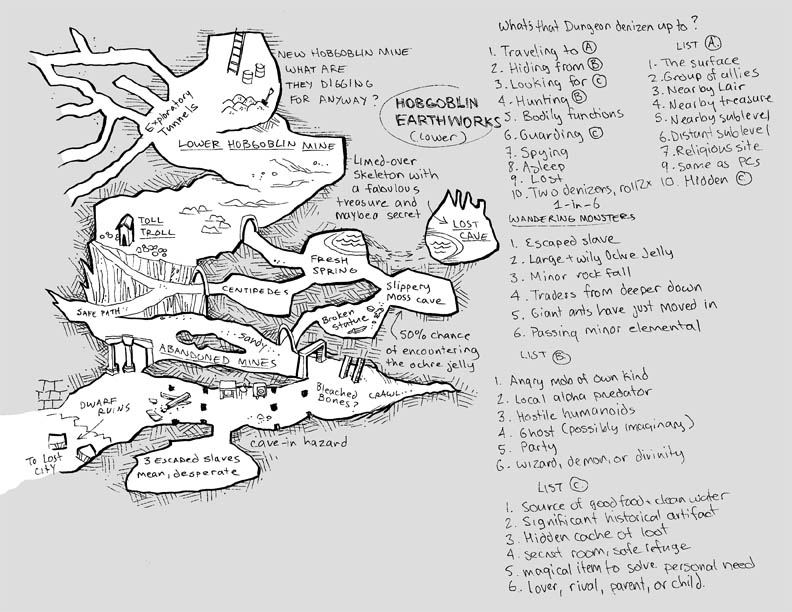 NEW HOBGOBLIN MINE
WHAT ARE
THEY DIGGING
FOR ANYWAY?
Exploratory
Tunnels
HOBGOBLIN
EARTHWORKS
(LOWER)
LOWER HOBGOBLIN MINE
Limed-over
skeleton with
a fabulous
treasure and
maybe a secret
LOST
CAVE
TOLL
TROLL
FRESH
SPRING
CENTIPEDES
Slippery
Moss cave
SAFE PATH
Broken
statue
Sandy
ABANDONED MINES
50% chance
of encountering
the ochre jelly
Bleached
Bones?
CRAWL
DWARF
RUINS
To Lost
City
cave-in hazard
3 ESCAPED slaves
mean, desperate
What's that Dungeon denizen up to?
1. Traveling to A
2. Hiding from B
3. Looking for C
4. Hunting B
5. Bodily functions
6. Guarding C
7. Spying
8. Asleep
9. Lost
10. Two denizens, roll 2x
LIST A.
1. The surface
2. Group of allies
3. Nearby Lair
4. Nearby treasure
5. Nearby sublevel
6. Distant sublevel
7. Religious site
9. Same as PCs
10. Hidden C
1-in-6
WANDERING MONSTERS
1. Escaped slave
2. Large + wily Ochre Jelly
3. Minor rock fall
4. Traders from deeper down
5. Giant ants have just moved in
6. Passing minor elemental
LIST B
1. Angry mob of own kind
2. Local alpha predator
3. Hostile humanoids
4. Ghost (possibly imaginary)
5. Party
6. wizard, demon, or divinity
LIST C
1. Source of good food + clean water
2. Significant historical artifact
3. Hidden cache of loot
4. secret room, safe refuge
5. magical item to solve personal need
6. lover, rival, parent, or child.